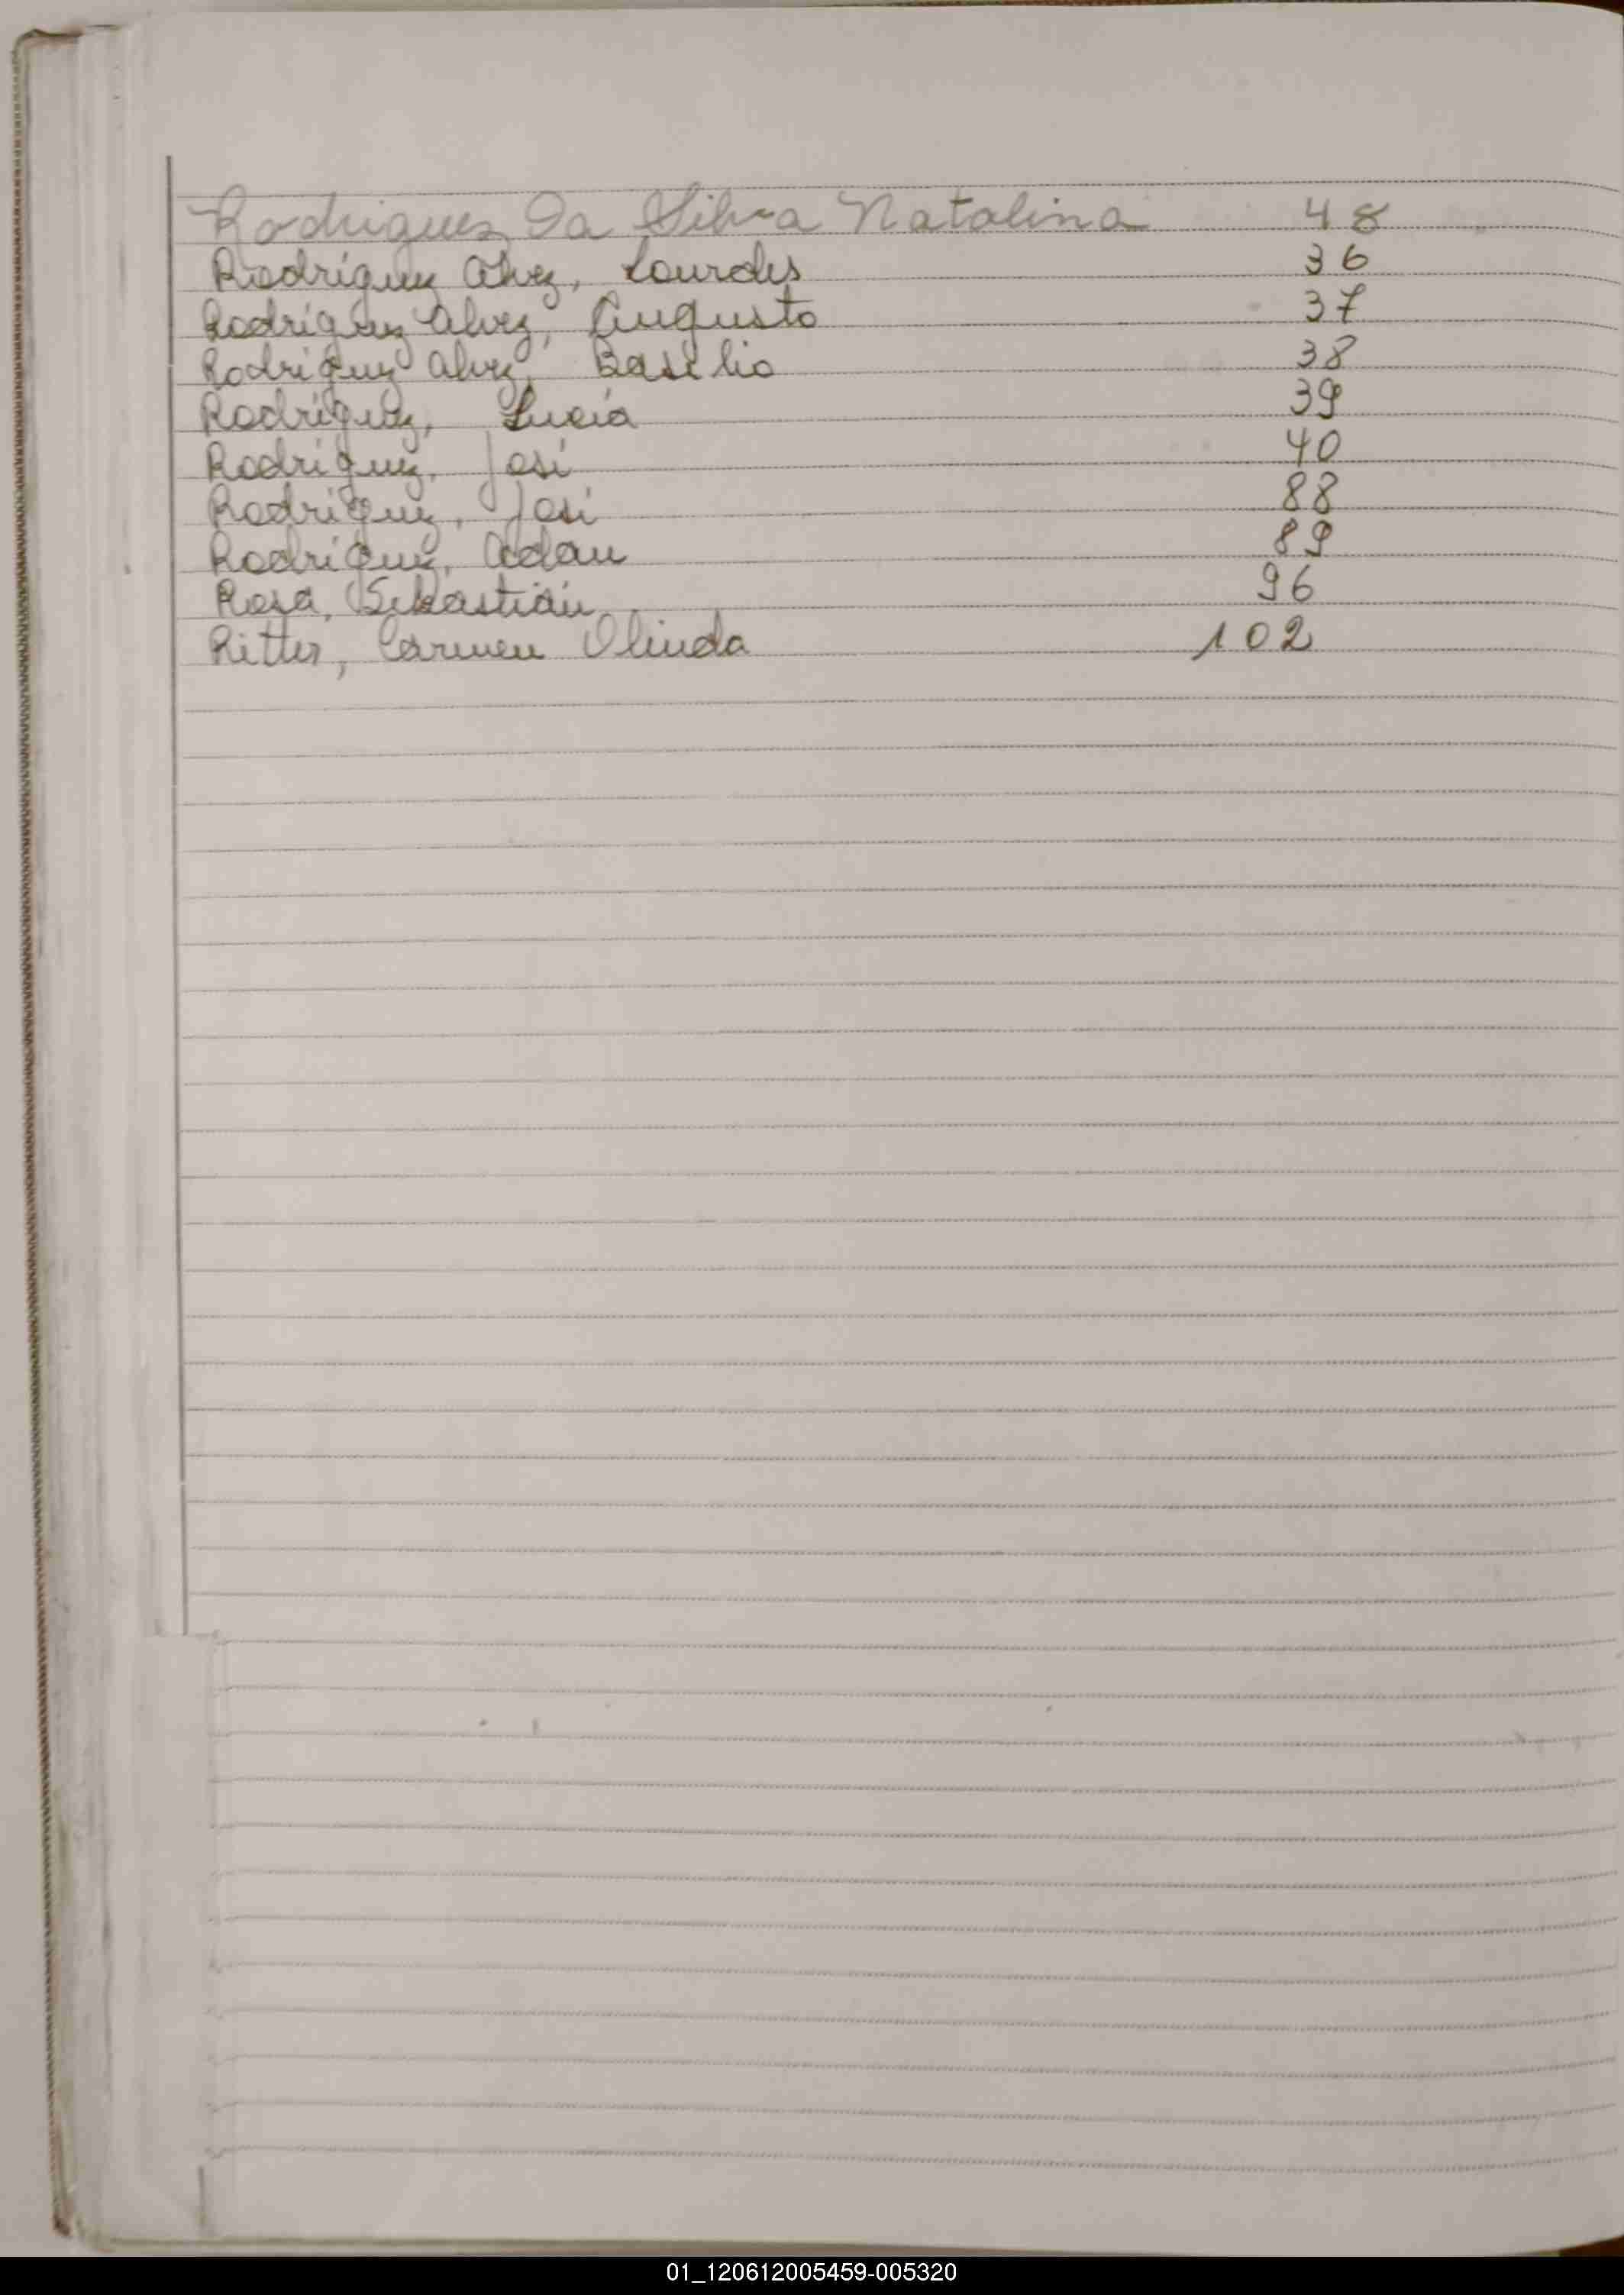 Rodriguez Da Silva Natalina 48
Rodriguez Alvez, Lourdes 36
Rodriguez Alvez, Augusto 37
Rodriguez Alvez, Basilio 38
Rodriguez, Lucía 39
Rodriguez, José 40
Rodriguez, José 88
Rodriguez, Adán 89
Rosa, Sebastián 96
Ritter, Carmen Olinda 102
01_120612005459-005320